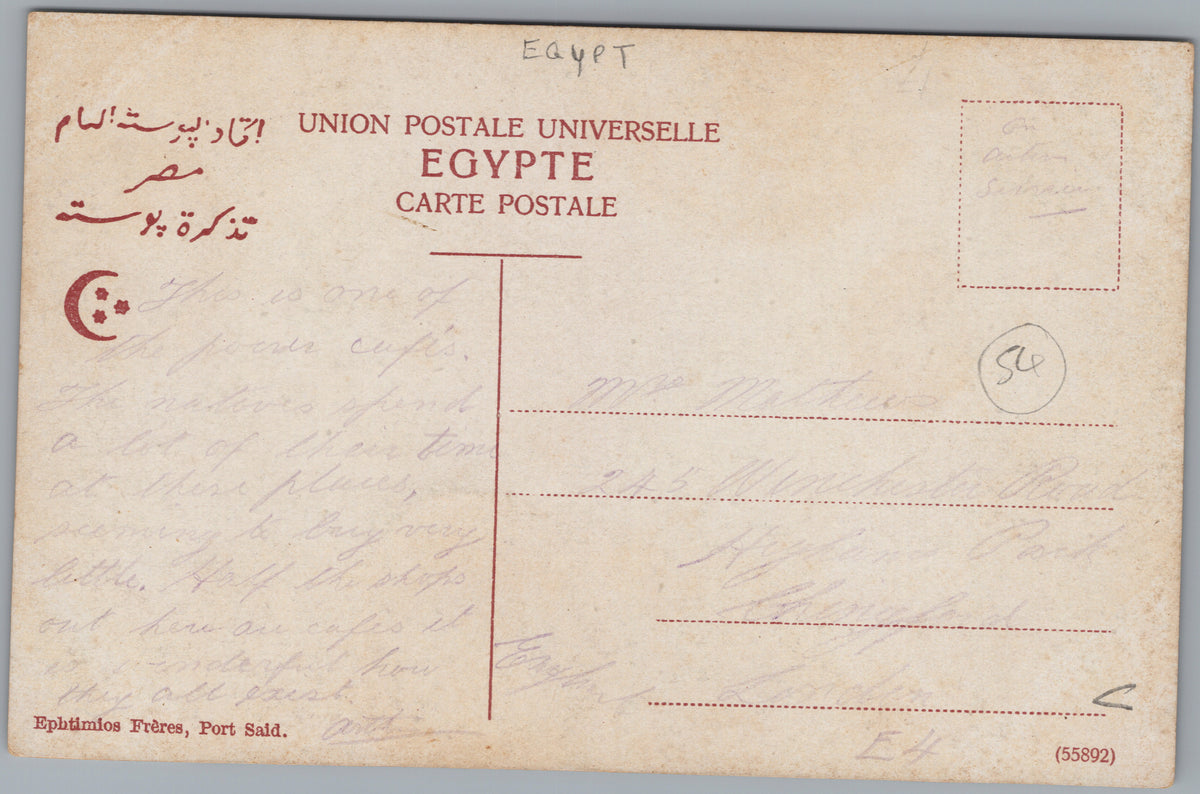 EGYPT
اتحاد البوسته العام
مصر
تذكرة بوسته
UNION POSTALE UNIVERSELLE
EGYPTE
CARTE POSTALE
on
active
Service
This is one of
the poorer cafés.
The natives spend
a lot of their time
at these places,
seeming to buy very
little. Half the shops
out here are cafés it
is wonderful how
they all exist
Arth
54
Mrs Mathews
245 Winchester Road
Highams Park
Chingford
London
England
E4
Ephtimios Frères, Port Said.
(55892)